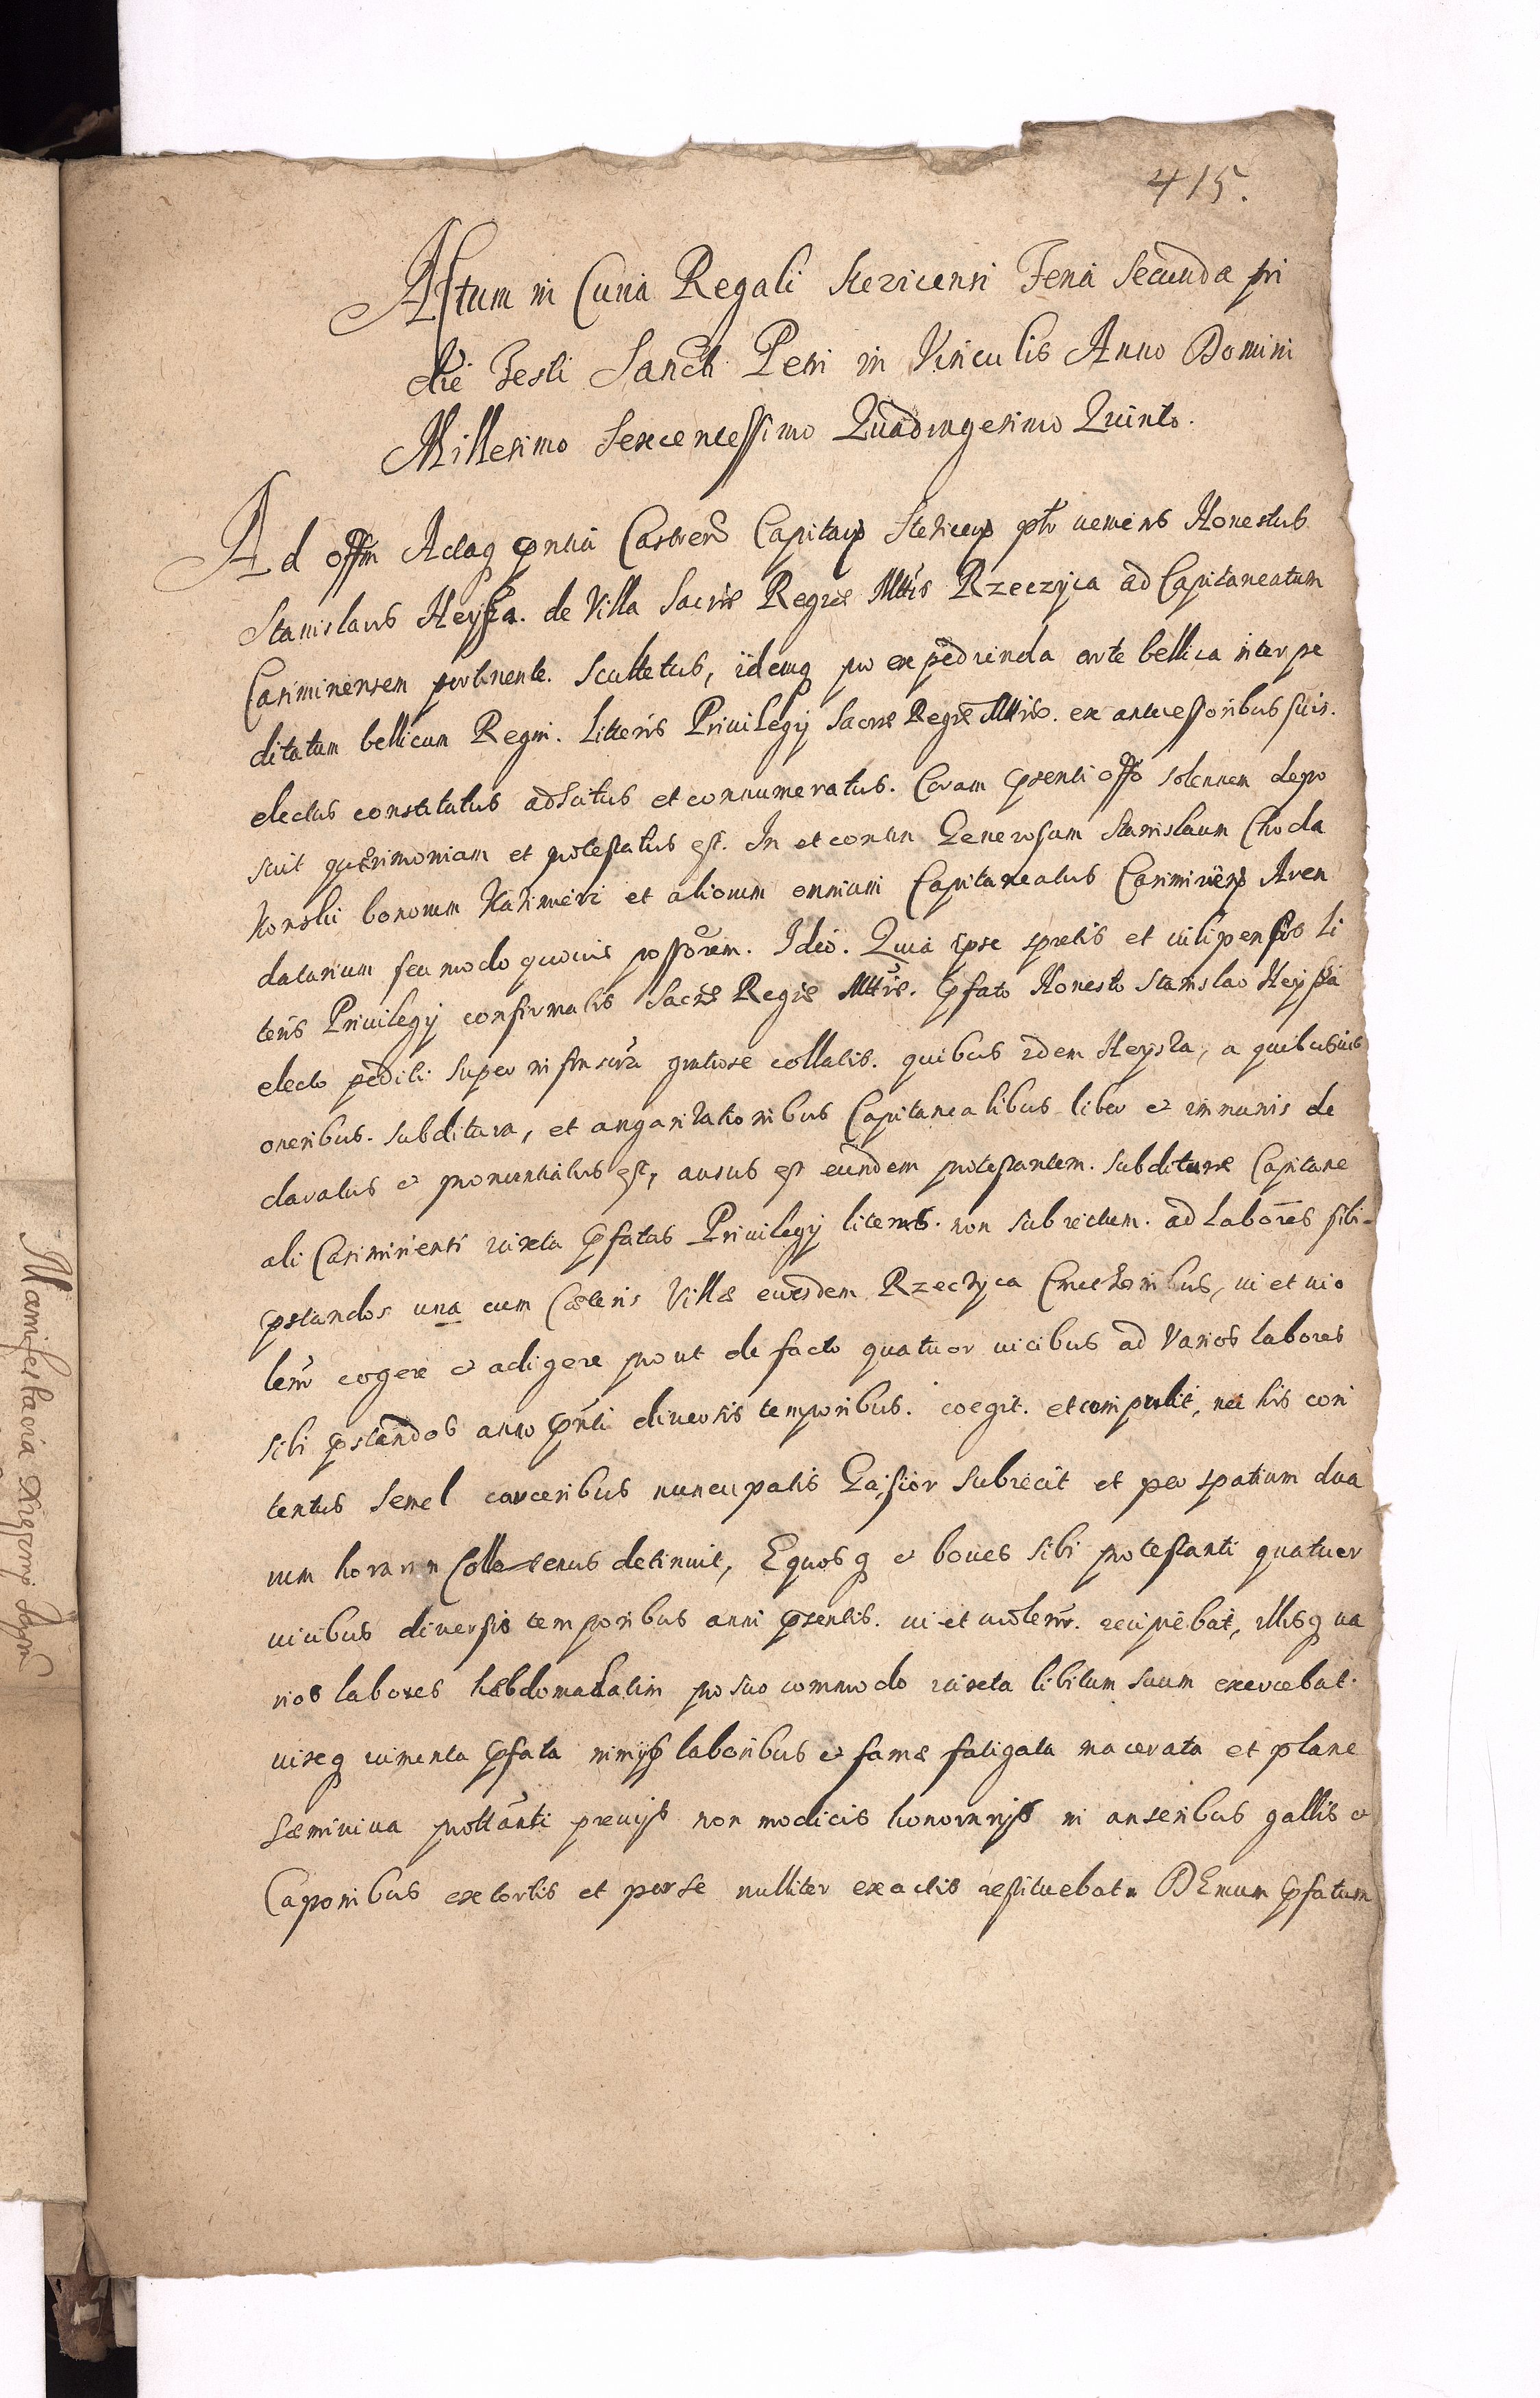 415.
Actum in Curia Regali Stezicensi Feria Secunda pri
die Festi Sancti Petri in Vinculis Anno Domini
Millesimo Sexcentessimo Quadringesimo Quinto.
Ad offm Actaq pntia Castren Capitan Stezicen ptr veniens Honestus
Stanislaus Heyska. de Villa Sacræ Regiæ Mttis Rzeczyca ad Capitaneatum
Casiminensem pertinente. Scultetus, idemq pro expedienda arte bellica inter pe
ditatum bellicum Regni. Litteris Privilegij Sacræ Regiæ Mttis. ex antecessoribus suis.
electus constitutus adscitus et connumeratus. Coram pnsenti offo solennem depo
suit quærimoniam et protestatus est. In et contra Generosum Stanislaum Choda
konski bonorum Kazimirz et aliorum omnium Capitaneatus Casimirien Aren
datarium seu modo quovis possorem. Ideo. Quia ipse spretis et vilipensis Li
teris Privilegij confirmatis Sacræ Regiæ Mttis. pfato Honesto Stanislao Heyska
electo pediti super infrascra gratiose collatis. quibus idem Heyska, a quibusvis
oneribus. subditura, et angarizationibus Capitanealibus liber et immunis de
claratus et pronuntiatus est, ausus est eundem protestantem. subdituræ Capitane
ali Casimiriensi iuxta pfatas Privilegij literas. non subiectum. ad labores sibi
pstandos una cum Cæteris Villæ eiusdem Rzeczyca Cmethonibus, vi et vio
lenr cogere et adigere prout de facto quatuor vicibus ad varios labores
sibi pstandos anno pnti diversis temporibus. coegit. et compulit, nec his con
tentus semel carceribus nuncupatis Gąsior subiecit et per spatium dua
rum horarum Collotenus detinuit, Equosq et boves sibi protestanti quatuor
vicibus diversis temporibus anni psentis. vi et violenr. recipiebat, illisq va
rios labores hæbdomadatim pro suo commodo iuxta libitum suum exercebat.
vixq iumenta pfata nimijs laboribus et fame fatigata macerata et plane
sæmiviva prottanti previjs non modicis honorarijs in anseribus gallis et
Caponibus extortis et per se nulliter exactis restituebat. DEmum pfatum